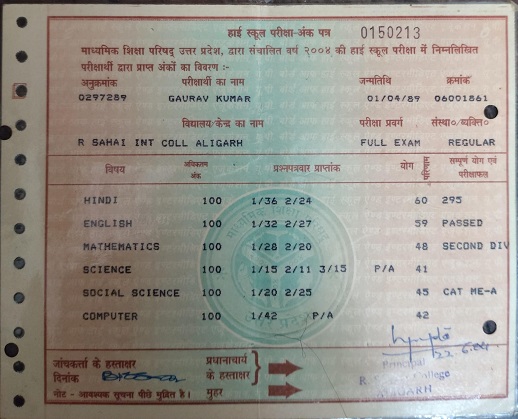 हाई स्कूल परीक्षा-अंक पत्र 0150213
माध्यमिक शिक्षा परिषद् उत्तर प्रदेश, द्वारा संचालित वर्ष २००४ की हाई स्कूल परीक्षा में निम्नलिखित
परीक्षार्थी द्वारा प्राप्त अंकों का विवरण :-
अनुक्रमांक परीक्षार्थी का नाम जन्मतिथि क्रमांक
0297289 GAURAV KUMAR 01/04/89 06001861
विद्यालय/केन्द्र का नाम परीक्षा प्रवर्ग संस्था०/व्यक्ति०
R SAHAI INT COLL ALIGARH FULL EXAM REGULAR
विषय अधिकतम अंक प्रश्नपत्रवार प्राप्तांक योग परिणाम सम्पूर्ण योग एवं परीक्षाफल
HINDI 100 1/36 2/24 60 295
ENGLISH 100 1/32 2/27 59 PASSED
MATHEMATICS 100 1/28 2/20 48 SECOND DIV
SCIENCE 100 1/15 2/11 3/15 P/A 41
SOCIAL SCIENCE 100 1/20 2/25 45 CAT ME-A
COMPUTER 100 1/42 P/A 42
जांचकर्ता के हस्ताक्षर प्रधानाचार्य के हस्ताक्षर Principal 22.6.04
दिनांक मुहर College
नोट - आवश्यक सूचना पीछे मुद्रित है। ALIGARH